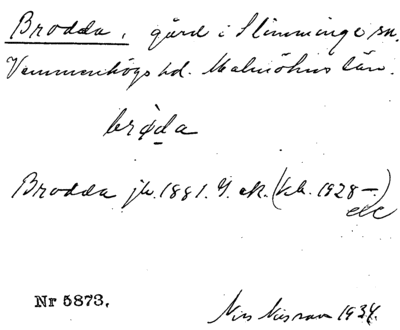 Brodda, gård i Slimminge sn.
Vemmenhögs hd. Malmöhus län.
bròda
Brodda jb. 1881. G. ek. (kb. 1928 –)
etc
Nr 5873.
1934.